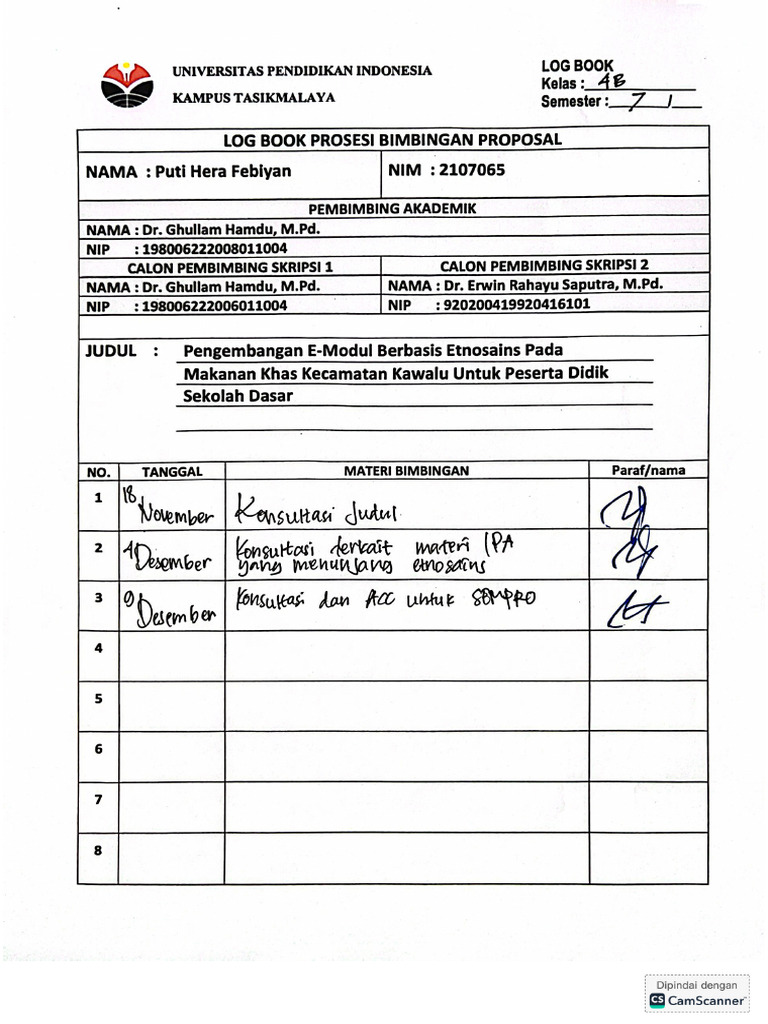 UNIVERSITAS PENDIDIKAN INDONESIA
KAMPUS TASIKMALAYA
LOG BOOK
Kelas : 4B
Semester : 7
LOG BOOK PROSESI BIMBINGAN PROPOSAL
NAMA : Puti Hera Febiyan
NIM : 2107065
PEMBIMBING AKADEMIK
NAMA : Dr. Ghullam Hamdu, M.Pd.
NIP : 198006222008011004
CALON PEMBIMBING SKRIPSI 1
CALON PEMBIMBING SKRIPSI 2
NAMA : Dr. Ghullam Hamdu, M.Pd.
NAMA : Dr. Erwin Rahayu Saputra, M.Pd.
NIP : 198006222006011004
NIP : 920200419920416101
JUDUL : Pengembangan E-Modul Berbasis Etnosains Pada
Makanan Khas Kecamatan Kawalu Untuk Peserta Didik
Sekolah Dasar
NO. TANGGAL MATERI BIMBINGAN Paraf/nama
1 18 November Konsultasi Judul
2 4 Desember Konsultasi terkait materi IPA
yang menunjang etnosains
3 9 Desember Konsultasi dan ACC untuk SEMPRO
4
5
6
7
8
Dipindai dengan
CS CamScanner